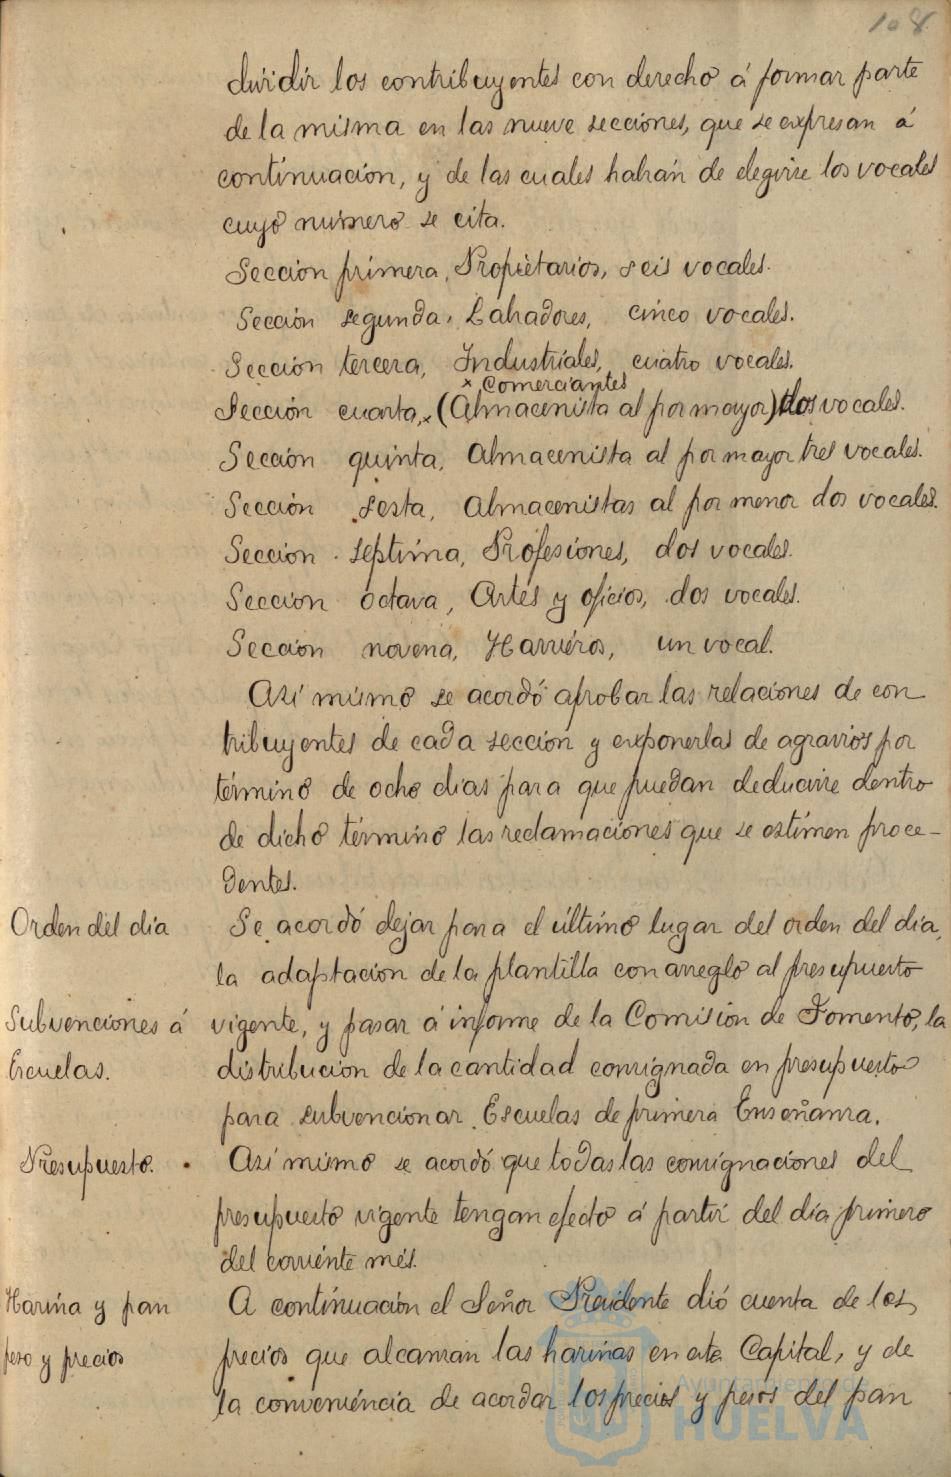 108
dividir los contribuyentes con derecho á formar parte
de la misma en las nueve secciones, que se expresan á
continuación, y de las cuales habrán de elegirse los vocales
cuyo número se cita.
Sección primera, Propietarios, seis vocales.
Sección segunda, Labradores, cinco vocales.
Sección tercera, Industriales, cuatro vocales.
x Comerciantes
Sección cuarta, x (Almacenista al por mayor) dos vocales.
Sección quinta, Almacenista al por mayor tres vocales.
Sección sesta, Almacenistas al por menor dos vocales.
Sección septima, Profesiones, dos vocales.
Sección octava, Artes y oficios, dos vocales.
Sección novena, Harrieros, un vocal.
Asi mismo se acordó aprobar las relaciones de con
tribuyentes de cada sección y exponerlas de agravios por
término de ocho dias para que puedan deducirse dentro
de dicho término las reclamaciones que se estimen proce-
dentes.
Orden del día
Se acordó dejar para el último lugar del orden del día,
la adaptación de la plantilla con arreglo al presupuesto
Subvenciones á
Escuelas.
vigente, y pasar á informe de la Comisión de Fomento, la
distribución de la cantidad consignada en presupuesto
para subvencionar Escuelas de primera Enseñanza.
Presupuesto.
Asi mismo se acordó que todas las consignaciones del
presupuesto vigente tengan efecto á partir del día primero
del corriente més.
Harina y pan
peso y precios
A continuación el Señor Presidente dió cuenta de los
precios que alcanzan las harinas en esta Capital, y de
la conveniencia de acordar los precios y pesos del pan
Ayuntamiento de
HUELVA